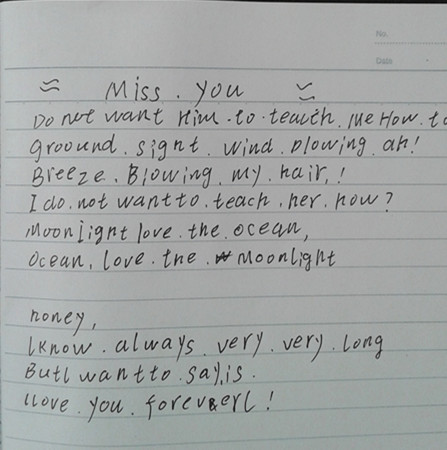 No.
Date
≈ Miss . you ≈
Do not want Him . to . teach . Me How . to
groound . sight . wind . blowing . ah!
Breeze . Blowing . my . hair, !
I do . not wantto . teach . her . how ?
Moonlight love . the . ocean,
ocean, love . the . Moonlight
honey,
I know . always . very . very . long
ButI wantto . say, is .
Ilove . you . foreverl !